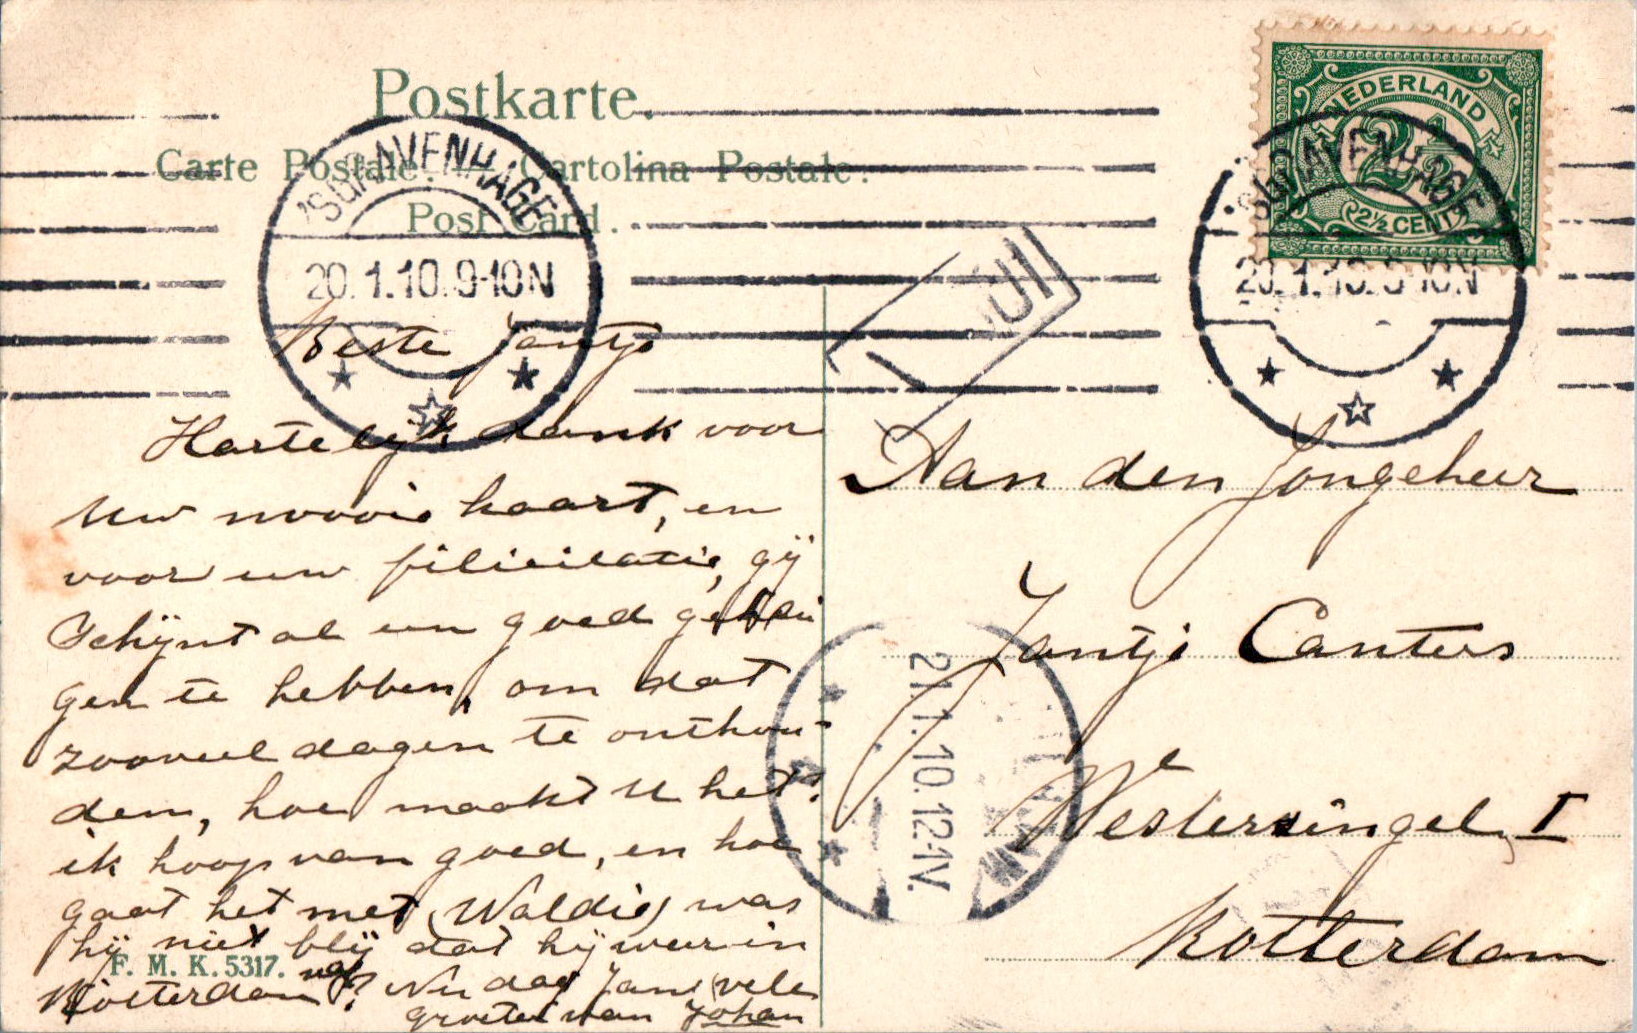 Postkarte.
Carte Postale. Cartolina Postale.
Post Card.
'SGRAVENHAGE
20.1.10.9-10N
NEDERLAND
2½
2½ CENT
'SGRAVENHAGE
20.1.10.9-10N
Beste Jantje
Hartelijk dank voor
Uw mooie kaart, en
voor uw filicitatie, gij
Schijnt al een goed geheu
gen te hebben, om dat
zooveel dagen te onthou-
den, hoe maakt U het?
ik hoop van goed, en hoe
gaat het met Woldie, was
hij niet blij dat hij weer in
Rotterdam was? Nu dag Jan vele
groeten van Johan
F. M. K. 5317.
Aan den Jongeheer
Jantje Canters
Westersingel I
Rotterdam
21.1.10.12-1V.